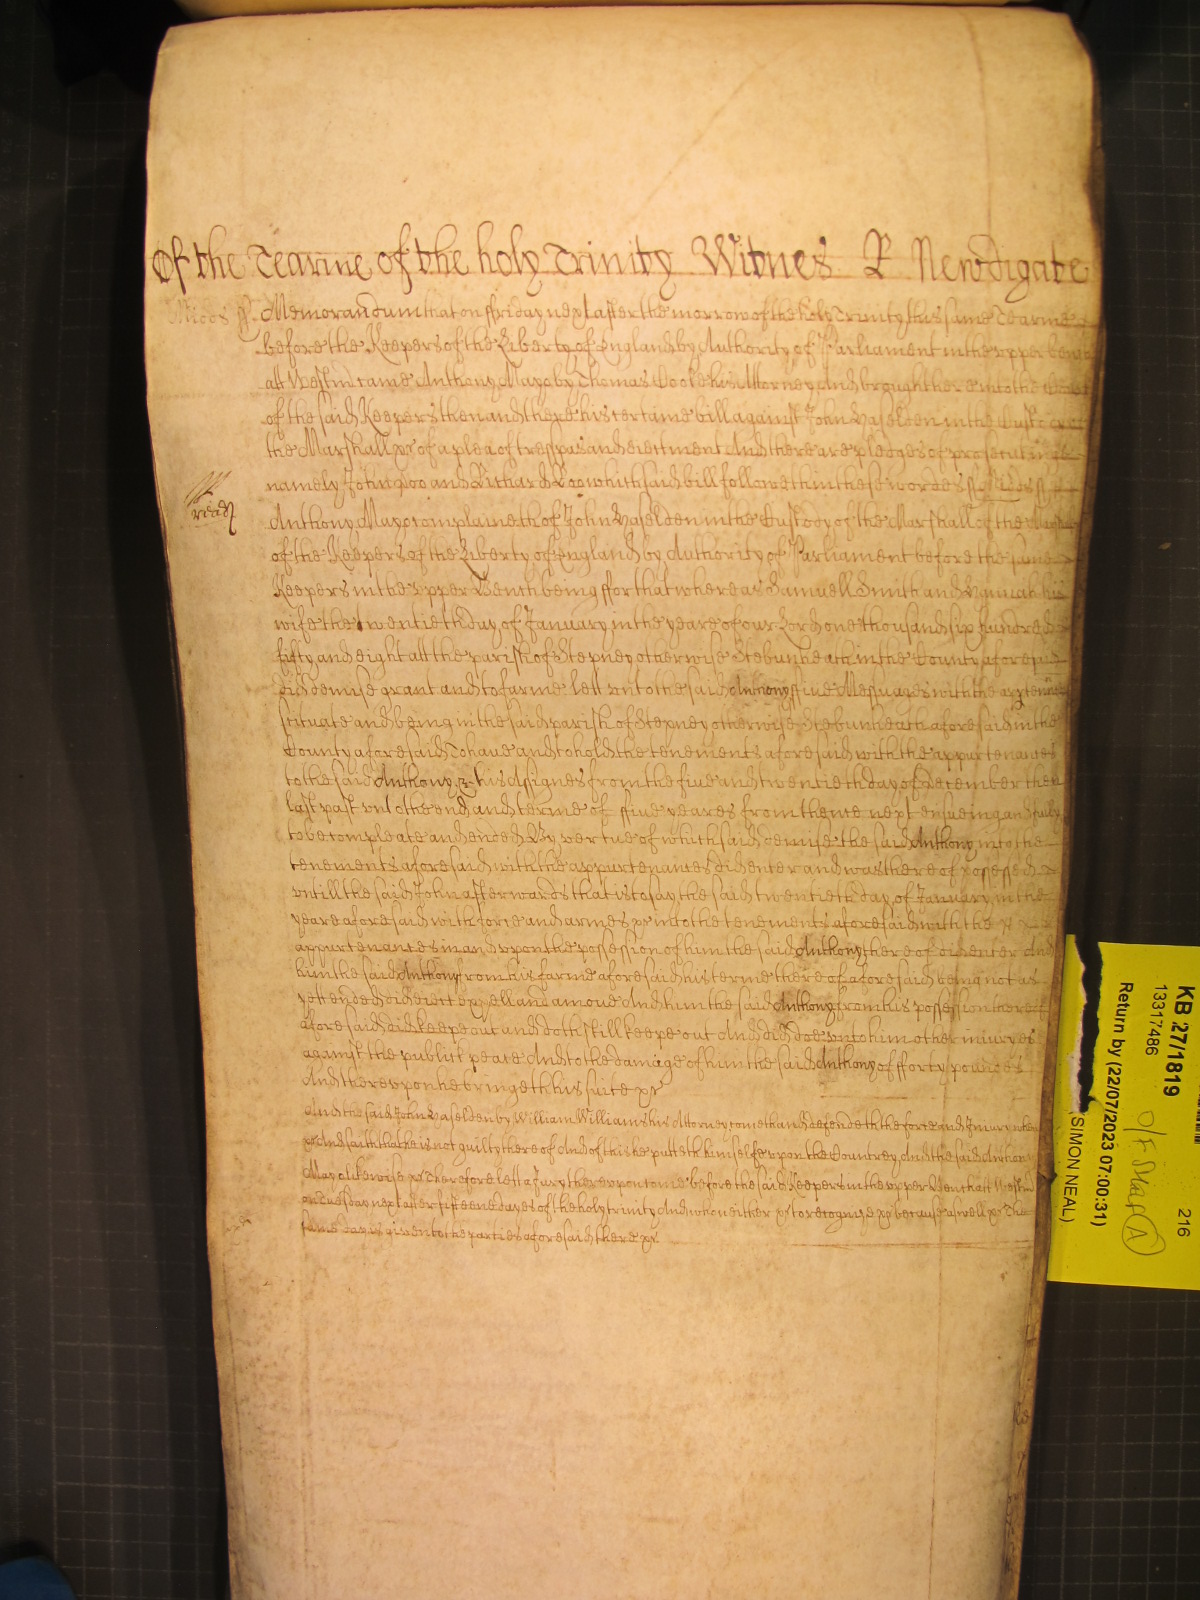 Of the Tearme of the holy Trinity Witnes R Newdigate
Midds ss. Memorandum that on ffriday next after the morrow of the holy Trinity this same Tearme
before the Keepers of the Liberty of England by Authority of Parliament in the upper bench
att Westm came Anthony Mayo by Thomas Cooke his Attorney And brought here into the Court
of the said Keepers then and there his certaine bill against John Haselden in the Custody
the Marshall xc of a plea of trespas and eiectment And there are pledges of prosecuting
namely John Doo and Richard Roo which said bill followeth in these wordes ss Midds ss
Anthony Mayo complaineth of John Haselden in the Custody of the Marshall of the
of the Keepers of the Liberty of England by Authority of Parliament before the same
Keepers in the upper Bench being ffor that whereas Samuell Smith and Hannah his
wife the twentieth day of January in the yeare of our Lord one thousand six hundred
fifty and eight att the parish of Stepney otherwise Stebunheath in the County aforesaid
did demise grant and to farme lett unto the said Anthony ffive Messuages with the appurtenances
scituate and being in the said parish of Stepney otherwise Stebunheath aforesaid in the
County aforesaid To have and to hold the tenements aforesaid with the appurtenances
to the said Anthony & his Assignes from the five and twentieth day of December then
last past unto the end and terme of ffive yeares from thence next ensueing and fully
to be compleate and ended By vertue of which said demise the said Anthony into the
tenements aforesaid with the appurtenances did enter and was thereof possessed
untill the said John afterwards that is to say the said twentieth day of January in the
yeare aforesaid with force and armes xc into the tenements aforesaid with the
appurtenances in and upon the possession of him the said Anthony thereof did enter And
him the said Anthony from his farme aforesaid his terme thereof aforesaid being not as
yett ended did eiect expell and amove And him the said Anthony from his possession thereof
aforesaid did keepe out and doth still keepe out And did doe unto him other iniuryes
against the publick peace And to the damage of him the said Anthony of fforty pounds
And thereupon he bringeth his suite xc
read
And the said John Haselden by William Williams his Attorney cometh and defendeth the force and Iniury when
xc And saith that he is not guilty thereof And of this he putteth himselfe upon the Countrey And the said Anthony
Mayo likewise xc Therefore lett a Jury thereupon come before the said Keepers in the upper Bench att Westm
on Tuesday next after fifteene dayes of the holy trinity And who neither xc to recognize xc because aswell xc The
same day is given to the parties aforesaid there xc
KB 27/1819
216
13317486
Return by (22/07/2023 07:00:31)
SIMON NEAL)
O/F Staff (A)